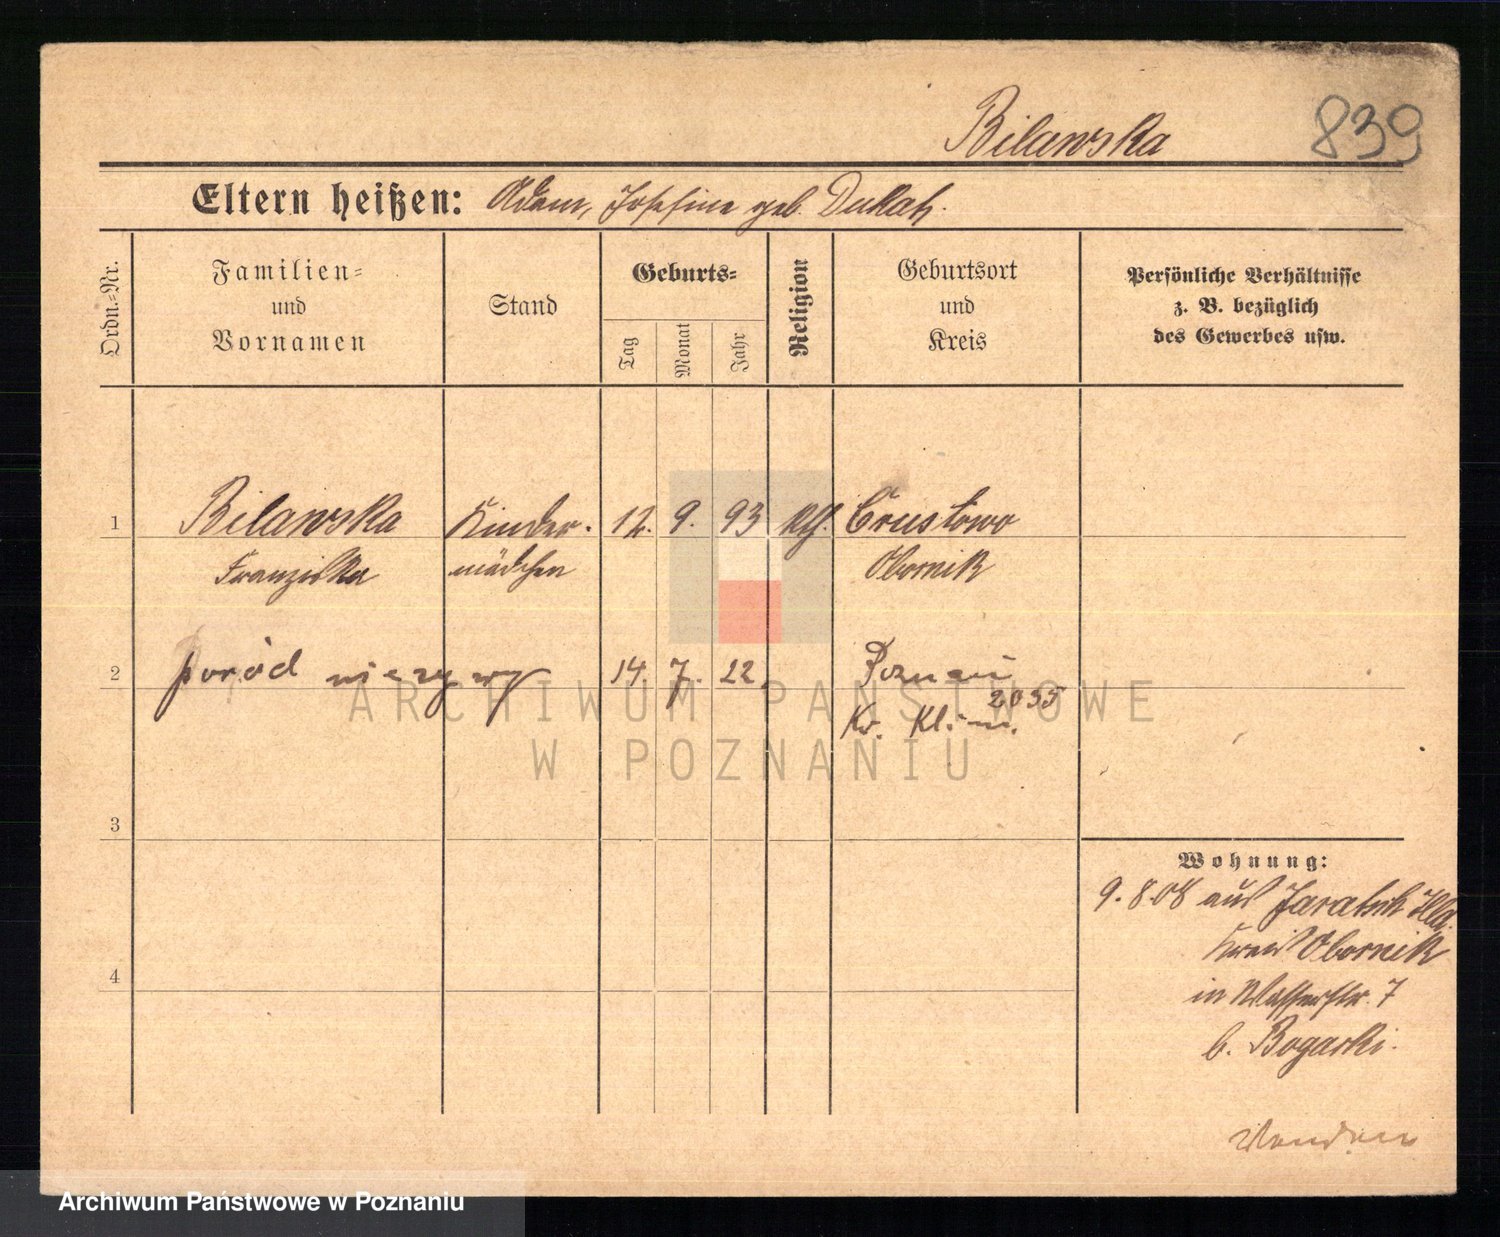 Bilawska 839
Eltern heißen: Adam, Josefine geb. Dukat.
Ordn.=Nr.
Familien=
und
Vornamen
Stand
Geburts=
Tag
Monat
Jahr
Religion
Geburtsort
und
Kreis
Persönliche Verhältnisse
z. B. bezüglich
des Gewerbes usw.
1 Bilawska Kinder- 12. 9. 93 kth. Crustowo
Franziska mädchen Obornik
2 poród nieżywy 14. 7. 22 Poznań
2035
Kr. Klin.
3
4
Wohnung:
9.8.08 aus
Kreis Obornik
in Wasserstr. 7
b. Bogacki.
ARCHIWUM PAŃSTWOWE
W POZNANIU
Archiwum Państwowe w Poznaniu